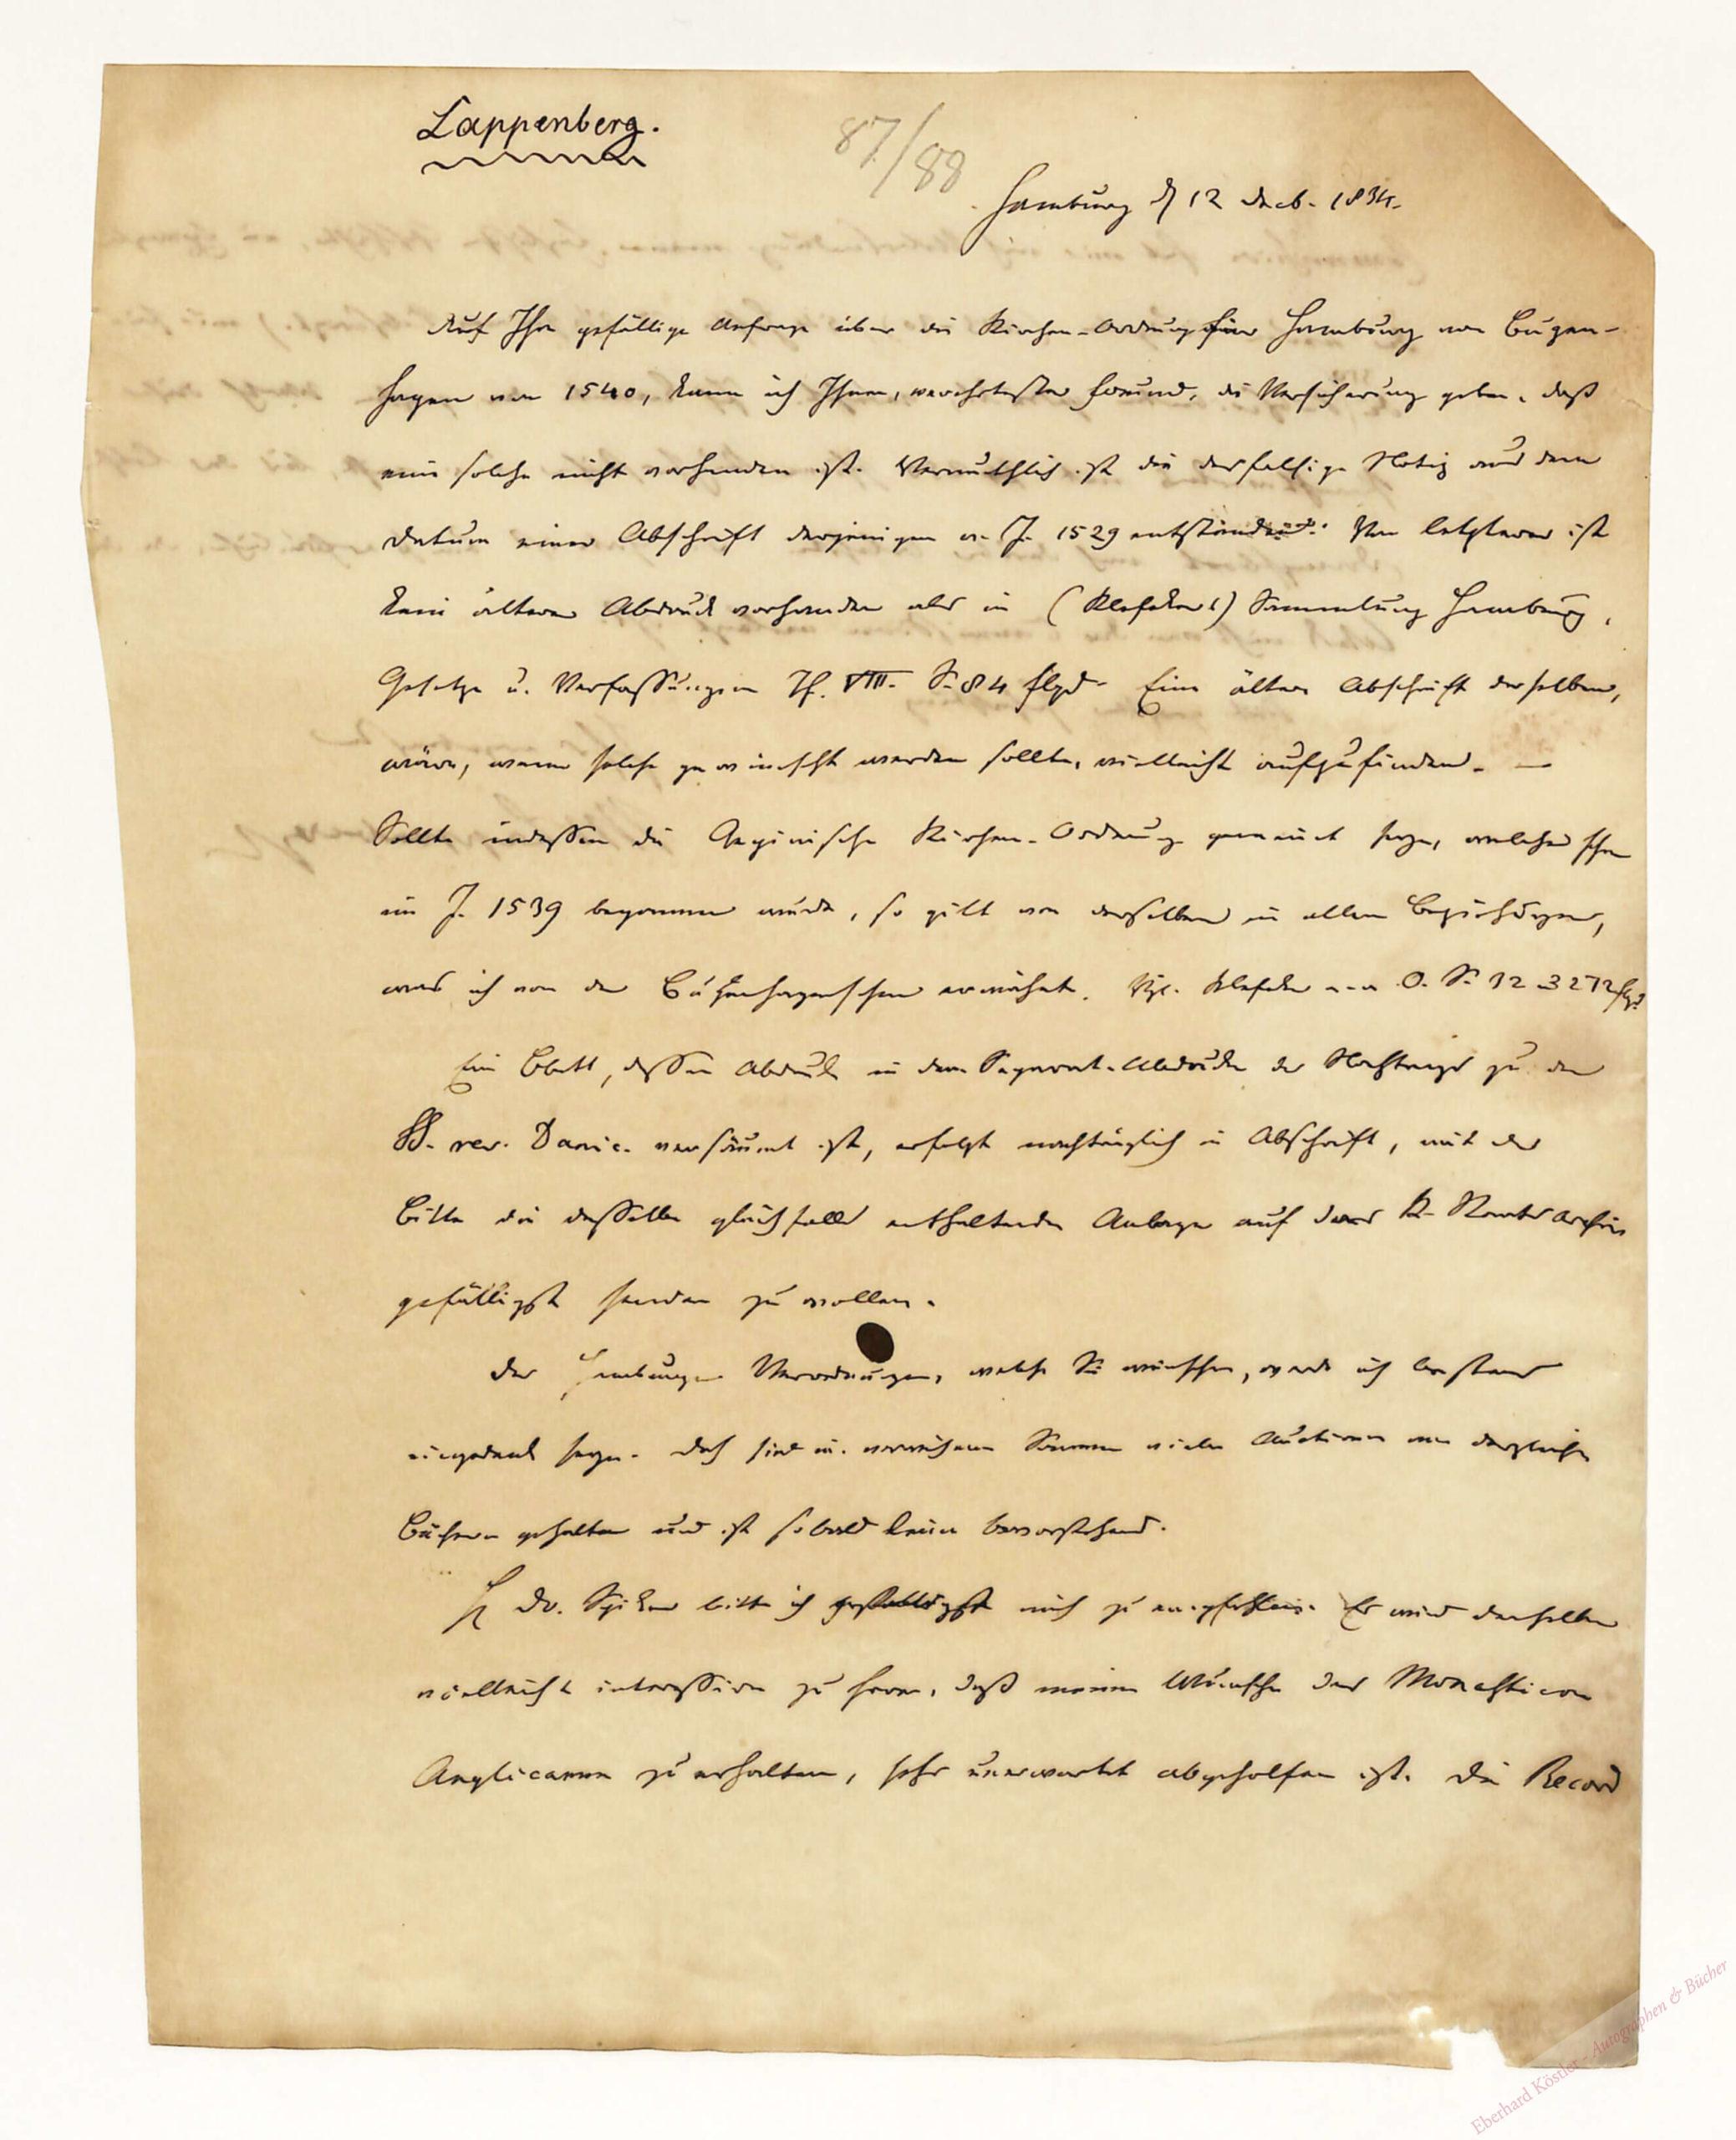 Lappenberg.
87/88
Hamburg d 12 Decb. 1834.
Auf Ihre gefällige Anfrage über die Kirchen-Ordnung für Hamburg von Bugen-
hagen von 1540, kann ich Ihnen, verehrtester Freund, die Versicherung geben, daß
eine solche nicht vorhanden ist. Vermuthlich ist die desfalsige Notiz aus dem
Datum einer Abschrift derjenigen v. J. 1529 entstanden. Von letzterer ist
kein älterer Abdruck vorhanden als in (Klefekers) Sammlung Hamburg.
Gesetze u. Verfassungen Th. VIII. S. 84 flgd. Eine ältere Abschrift derselben,
wäre, wenn solche gewünscht werden sollte, vielleicht aufzufinden. —
Sollte indessen die Aepinische Kirchen-Ordnung gemeint seyn, welche schon
im J. 1539 begonnen wurde, so gilt von derselben in allen Beziehungen,
was ich von der Bugenhagenschen erwähnt. Vgl. Klefeker a. a. O. S.
Ein Blatt, dessen Abdruck in dem Separat-Abdrucke der Nachträge zu den
SS. rer. Danic. versäumt ist, erfolgt nachträglich in Abschrift, mit der
Bitte die dasselbe gleichfalls enthaltende Anlage auf das K. Staatsarchiv
gefälligst senden zu wollen.
Der Hamburger Verordnungen, welche Sie wünschen, werde ich bestens
eingedenk seyn. Doch sind im verwichenen Sommer viele Auctionen von dergleichen
Büchern gehalten und ist sobald keine bevorstehend.
H Dr. Spiker bitte ich gefälligst mich zu empfehlen. Es wird denselben
vielleicht interessiren zu hören, daß meinem Wunsche das Monasticon
Anglicanum zu erhalten, sehr unerwartet abgeholfen ist. Die Record
Eberhard Köstler - Autographen & Bücher